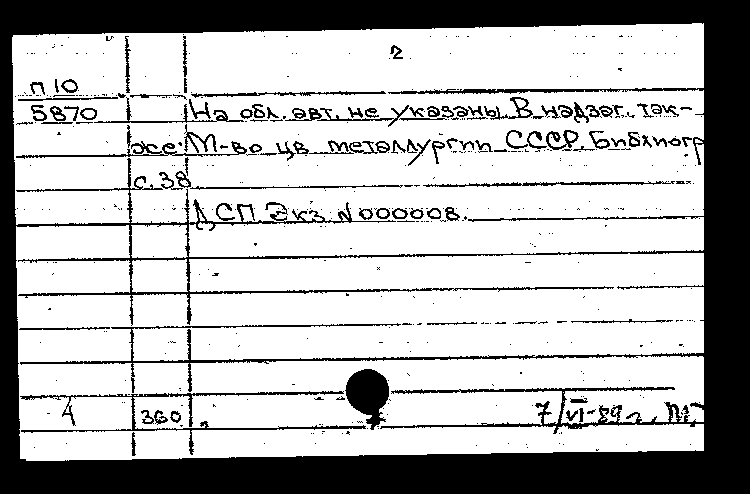 2
П 10
5870 На обл. авт. не указаны. В надзаг. так-
же: М-во цв. металлургии СССР. Библиогр
с. 38
ДСП Экз. N 000008.
4 360 7/VI-89 г.